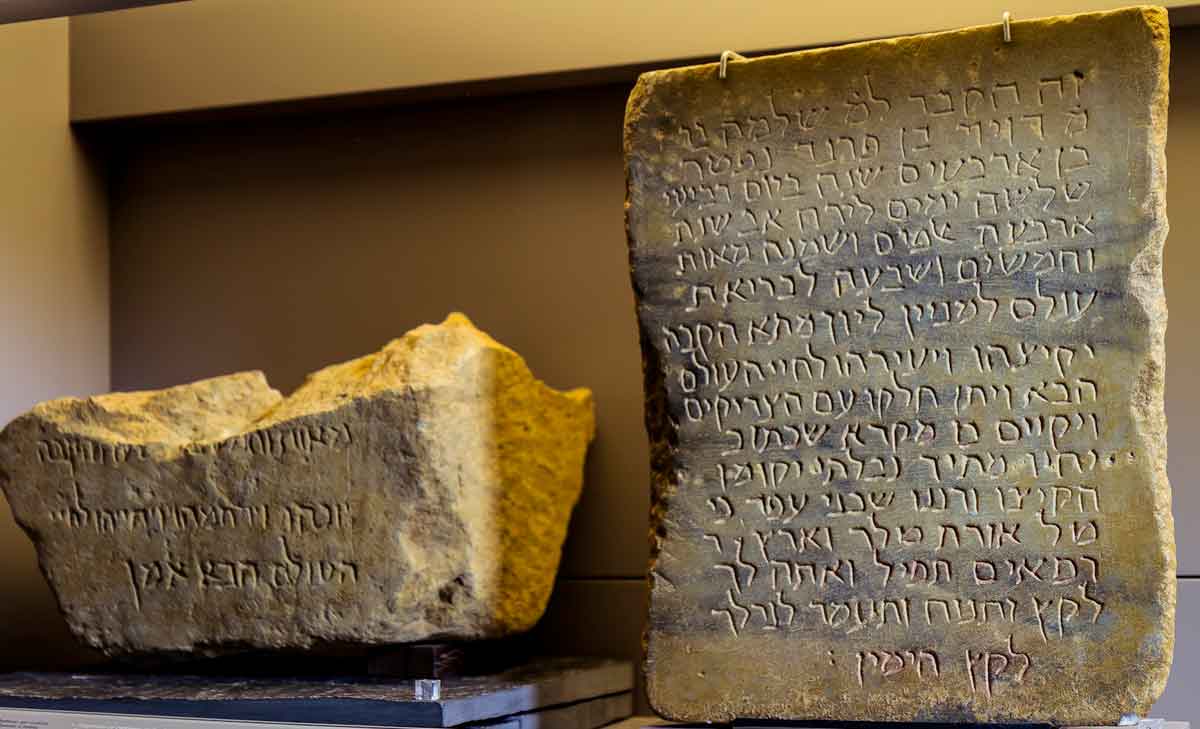 זה הקבר למ שלמה בן
מ דויד בן פרנך נפטר
בן ארבעים שנה ביום רביעי
שלשה ימים לירח אב שנת
ארבעה אלפים ושמנה מאות
וחמשים ושבעה לבריאת
עולם למניין ליון מתא הקבה
יקיצהו ויעירהו לחיי העולם
הבא ויתן חלקו עם הצדיקים
ויקויים בו מקרא שכתוב
יחיו מתיך נבלתי יקומון
הקיצו ורננו שכני עפר כי
טל אורת טלך וארץ
רפאים תפיל ואתה לך
לקץ ותנוח ותעמד לגרלך
לקץ הימין :
מאות
יזכהו וירחמהו ויחייהו לחיי
העולם הבא אמן